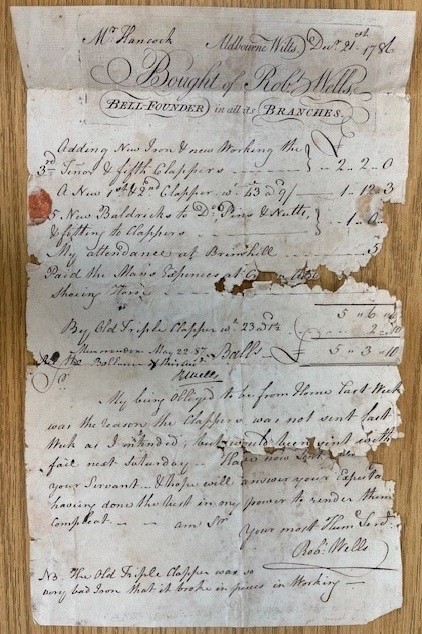 Mr. Hancock Aldbourne Wilts, Decr. 21st. 1786
Bought of Robt. Wells,
BELL-FOUNDER in all its BRANCHES.
Adding New Iron & new Working the
3rd. Tenor & fifth Clappers 2 - 2 - 0
A New 1st & 2nd Clapper wt. 43 a 9/ 1 - 12 - 3
5 New Baldricks to Do. Pins & Nutts,
& fitting to Clappers 1 - 0
My attendance at Bremhill 5
Paid the Mans Expences at
shoeing Horse
5 " 6 " 6
By Old Triple Clapper wt. 23 a 1½ 2 - 10
Memorandum May 22. 87 Balls £ 5 " 3 " 10
Recd. the
RWells
Sr.
My being Obliged to be from Home Last Week
was the reason the Clappers was not sent last
Week as I intended, but would been sent with
fail next Saturday Have now sent
your Servant & hope will answer your Expecta
having done the best in my power to render them
Compleat am Sr.
Your most Hum. Servt.
Robt. Wells
NB. The Old Triple Clapper was so
very bad Iron that it broke in pieces in Working